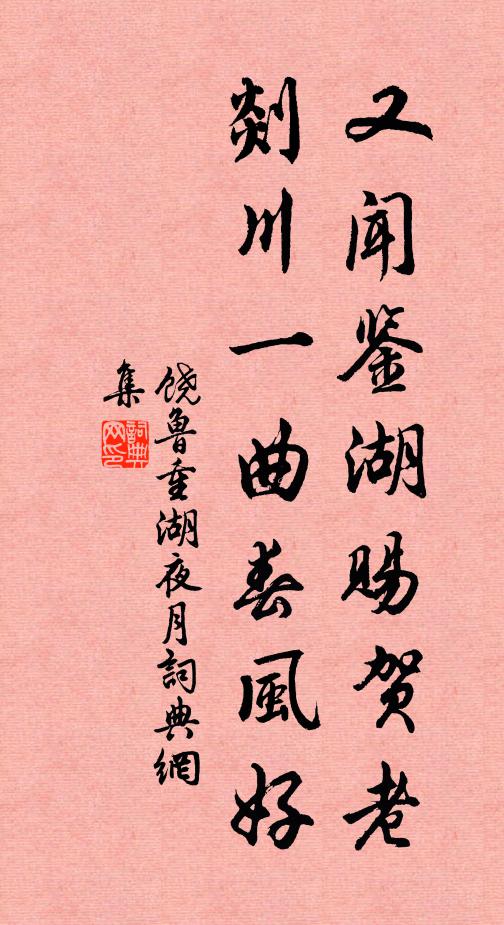 又闻鉴湖赐贺老
剡川一曲春风好
饶鲁重湖夜月詞典網
集
詞典网印